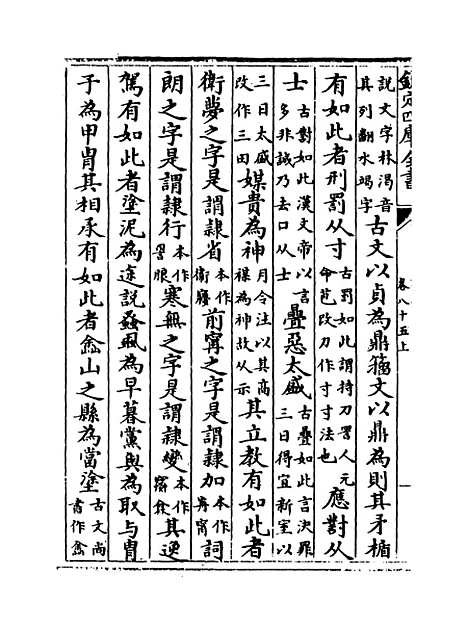 欽定四庫全書
卷八十五上
說文字林渴音
其列翻水竭字
古文以貞為鼎籀文以鼎為則其矛楯
有如此者刑罰从寸
古罰如此謂持刀詈人元
命苞改刀作寸寸法也
應對从
士
古對如此漢文帝以言
多非誠乃去口从士
疊惡太盛
古疊如此言決罪
三日得宜新室以
三日太盛
改作三田
媒貴為神
月令注以其高
禖為神故从示
其立教有如此者
衛夢之字是謂隸省
本作
前寜之字是謂隸加
本作
詞
朗之字是謂隸行
本作
寒無之字是謂隸變
本作
其逥
駕有如此者塗泥為途說蝨為早暮黨與為取与冑
子為甲冑其相承有如此者嵞山之縣為當塗
古文尚
書作嵞